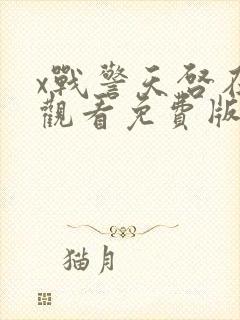 x戰警天啓在
觀看免費版
猫月